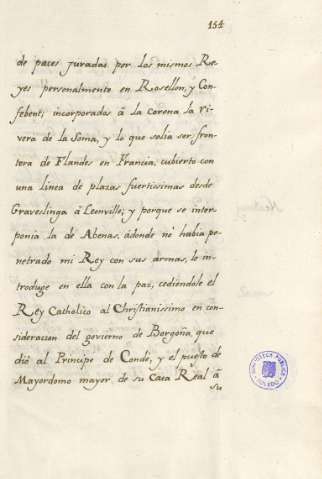 154
de paces juradas por los mismos Re-
yes personalmente en Rosellon, y Con-
febent; incorporados â la corona la ri-
vera de la Soma, y lo que solia ser fron-
tera de Flandes en Francia, cubierto con
una linea de plazas fuertissimas desde
Gravelinga â Leenville; y porque se inter-
ponia la de Abenas, âdonde no havia pe-
netrado mi Rey con sus armas, lo in-
troduge en ella con la paz, cediendole el
Rey Catholico al Christianissimo en con-
sideracion del govierno de Borgoña, que
dió al Principe de Condé, y el puesto de
Mayordomo mayor de su Casa Real â
su
BIBLIOTECA PUBLICA
TOLEDO